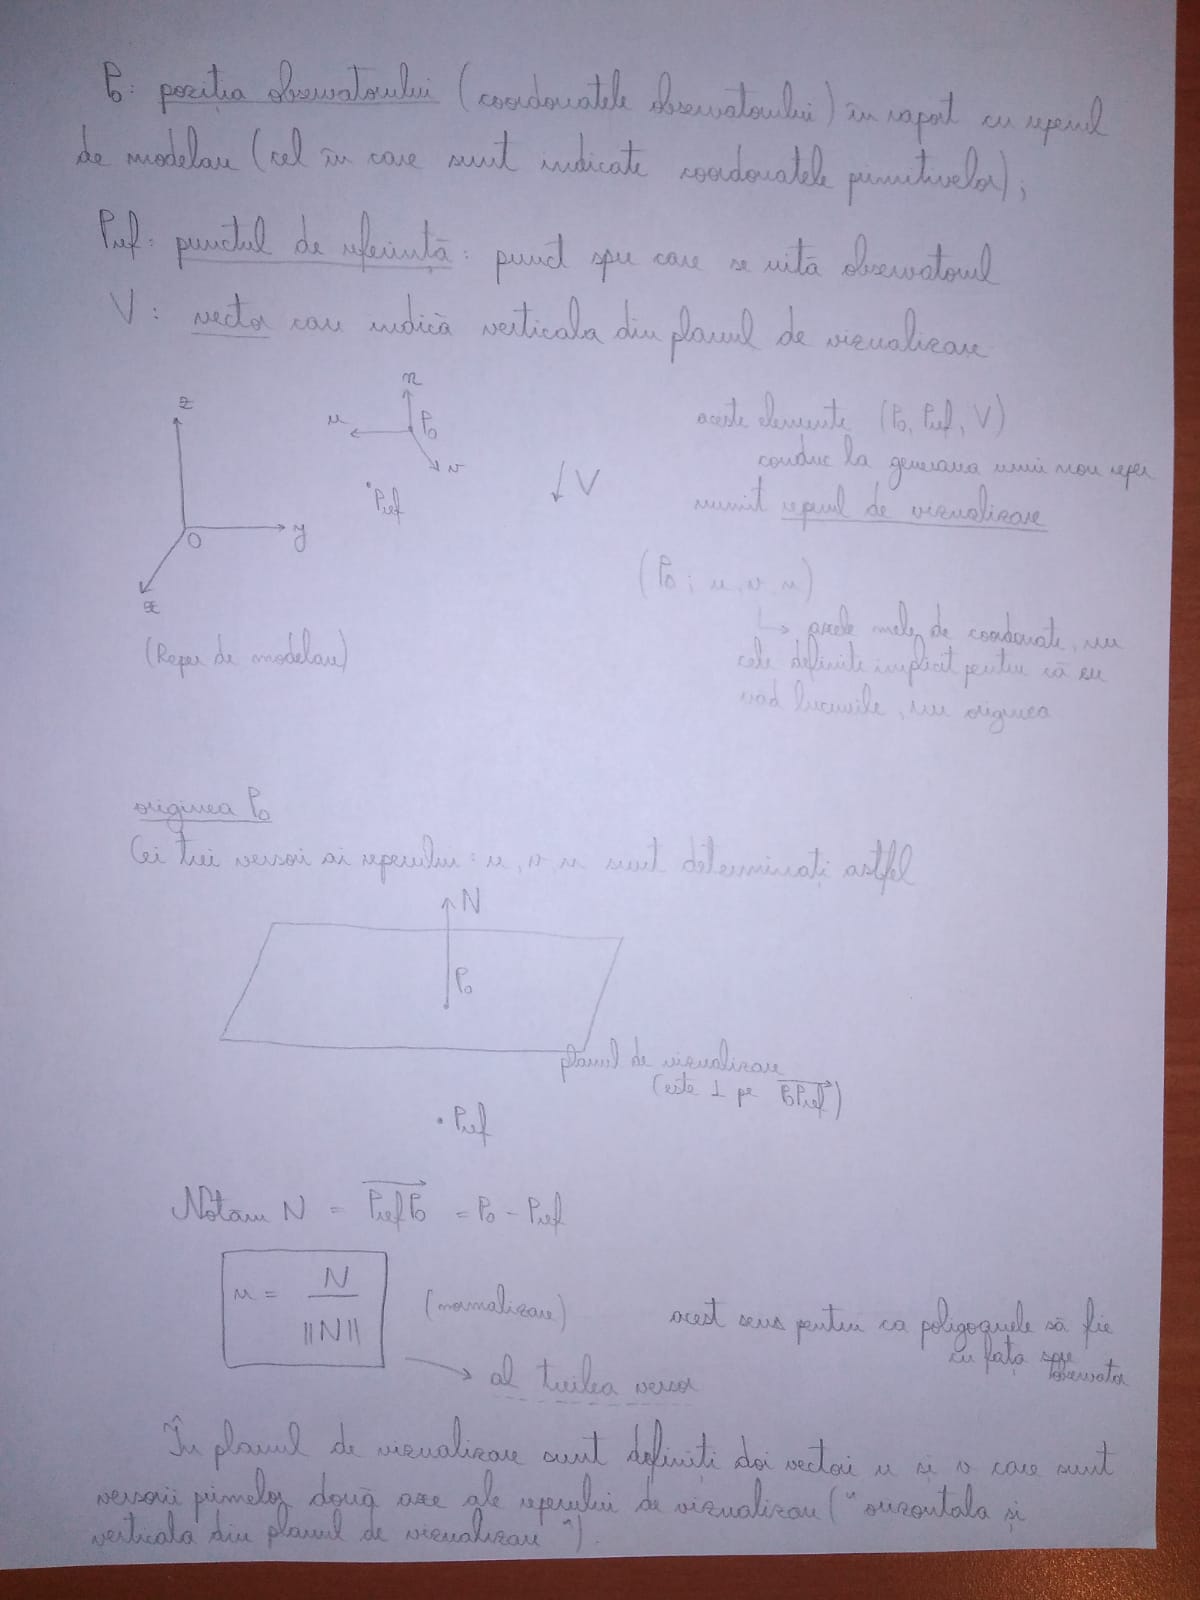 P₀: poziția observatorului (coordonatele observatorului) în raport cu reperul
de modelare (cel în care sunt indicate coordonatele primitivelor);
Pref: punctul de referință: punct spre care se uită observatorul
V: vector care indică verticala din planul de vizualizare
z
y
O
x
(Reper de modelare)
n
u
P₀
v
Pref
V
aceste elemente (P₀, Pref, V)
conduc la generarea unui nou reper
numit reperul de vizualizare
(P₀; u, v, n)
↳ axele mele de coordonate, nu
cele definite implicit pentru că eu
văd lucrurile, nu originea
originea P₀
Cei trei versori ai reperului: u, v, n sunt determinați astfel
N
P₀
planul de vizualizare
(este ⊥ pe P₀Pref)
Pref
Notăm N = PrefP₀ = P₀ - Pref
n = N / ||N||
(normalizare)
acest sens pentru ca poligoanele să fie
cu fața spre
observator
al treilea versor
În planul de vizualizare sunt definiți doi vectori u și v care sunt
versorii primelor două axe ale reperului de vizualizare ("orizontala și
verticala din planul de vizualizare").